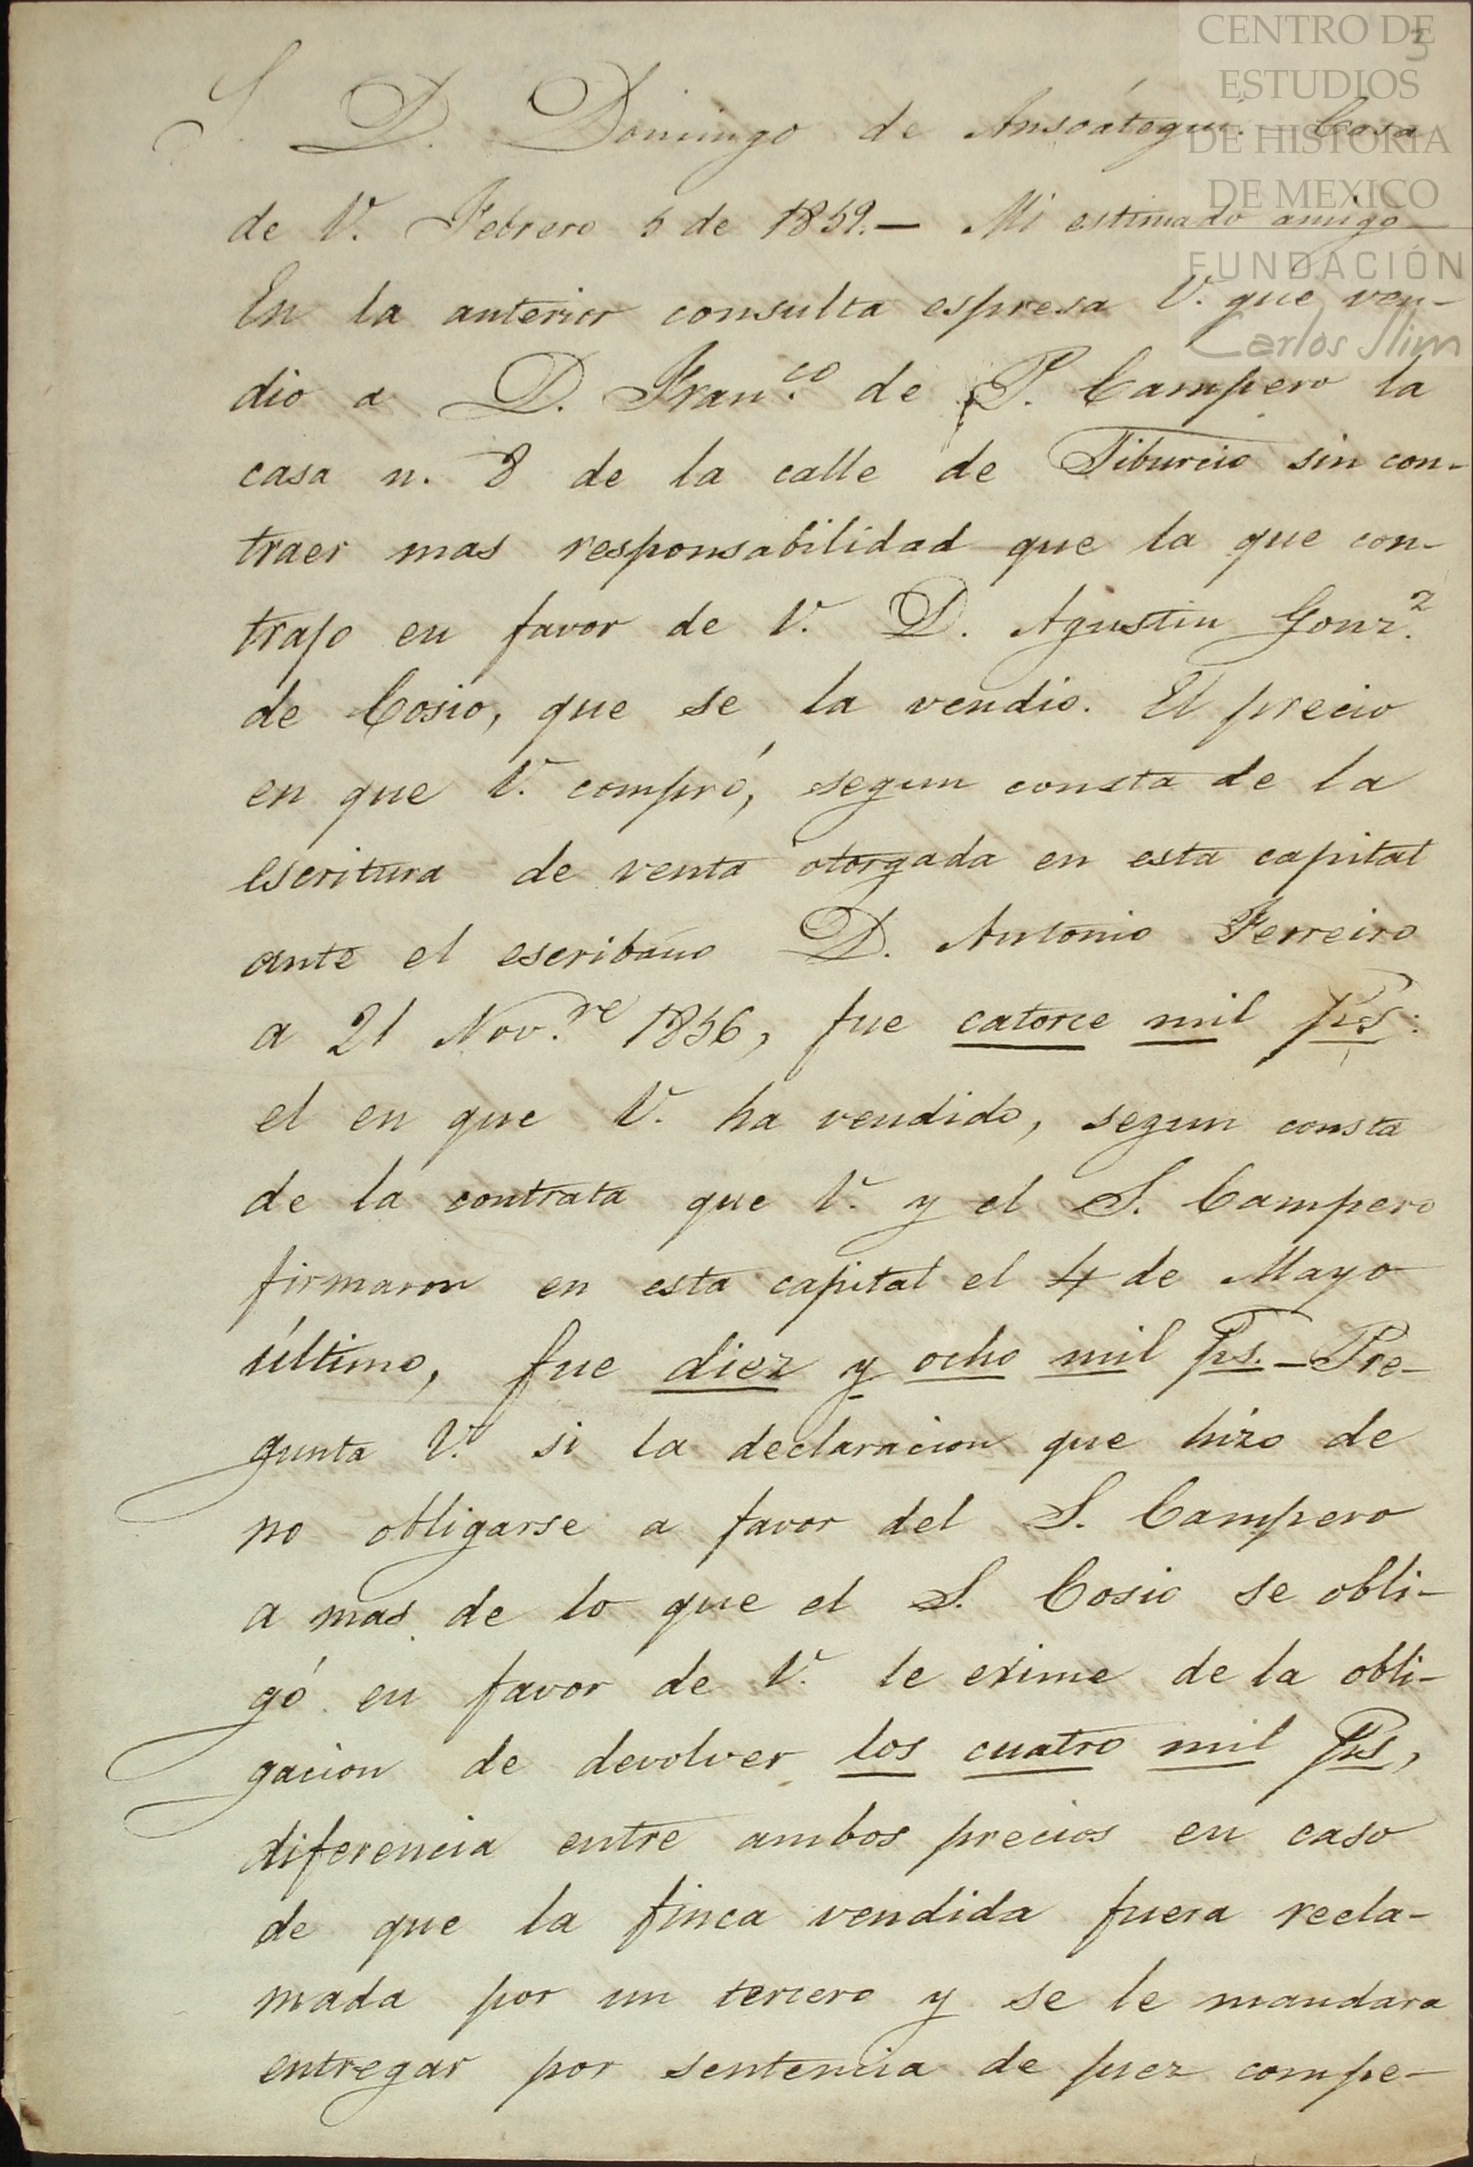 CENTRO DE
ESTUDIOS
DE HISTORIA
DE MEXICO
FUNDACIÓN
Carlos Slim
3
S. D. Domingo de Ansoátegui. - Casa
de V. Febrero 5 de 1859.— Mi estimado amigo—
En la anterior consulta espresa V. que ven-
dio a D. Fran.co de P. Campero la
casa n. 8 de la calle de Tiburcio sin con-
traer mas responsabilidad que la que con-
trajo en favor de V. D. Agustin Gonz.z
de Cosio, que se la vendio. El precio
en que V. compró, segun consta de la
escritura de venta otorgada en esta capital
ante el escribano D. Antonio Ferreiro
a 21 Nov.re 1856, fue catorce mil ps:
el en que V. ha vendido, segun consta
de la contrata que V. y el S. Campero
firmaron en esta capital el 4 de Mayo
último, fue diez y ocho mil ps. - Pre-
gunta V. si la declaracion que hizo de
no obligarse a favor del S. Campero
a mas de lo que el S. Cosio se obli-
gó en favor de V. le exime de la obli-
gacion de devolver los cuatro mil ps,
diferencia entre ambos precios en caso
de que la finca vendida fuera recla-
mada por un tercero y se le mandara
entregar por sentencia de juez compe-